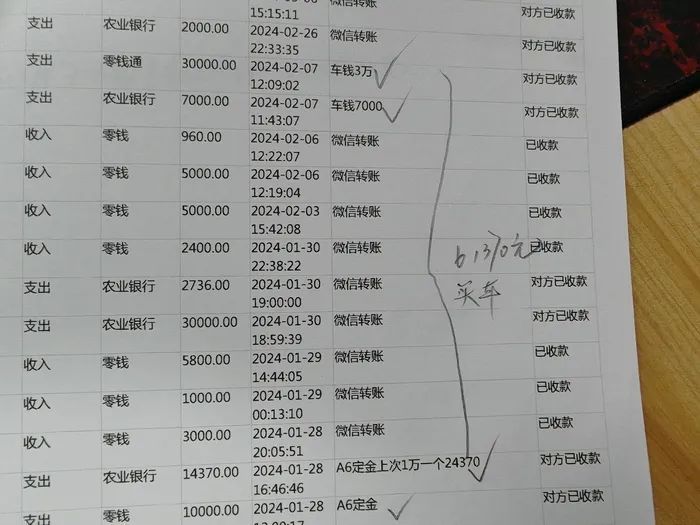 微信转账
15:15:11 对方已收款
支出 农业银行 2000.00 2024-02-26 22:33:35 微信转账 对方已收款
支出 零钱通 30000.00 2024-02-07 12:09:02 车钱3万 对方已收款
支出 农业银行 7000.00 2024-02-07 11:43:07 车钱7000 对方已收款
收入 零钱 960.00 2024-02-06 12:22:07 微信转账 已收款
收入 零钱 5000.00 2024-02-06 12:19:04 微信转账 已收款
收入 零钱 5000.00 2024-02-03 15:42:08 微信转账 已收款
收入 零钱 2400.00 2024-01-30 22:38:22 微信转账 已收款
61370元
买车
支出 农业银行 2736.00 2024-01-30 19:00:00 微信转账 对方已收款
支出 农业银行 30000.00 2024-01-30 18:59:39 微信转账 对方已收款
收入 零钱 5800.00 2024-01-29 14:44:05 微信转账 已收款
收入 零钱 1000.00 2024-01-29 00:13:10 微信转账 已收款
收入 零钱 3000.00 2024-01-28 20:05:51 微信转账 已收款
支出 农业银行 14370.00 2024-01-28 16:46:46 A6定金上次1万一个24370 对方已收款
支出 零钱 10000.00 2024-01-28 A6定金 对方已收款